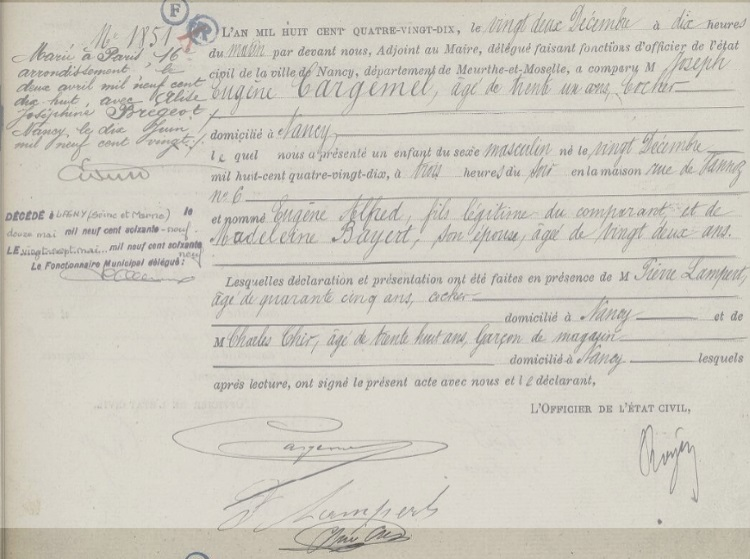 F
R
N° 1851
Marié à Paris 16
arrondissement le
deux avril mil neuf cent
dix huit avec Elise
Joséphine Bregeot
Nancy, le dix Juin
mil neuf cent vingt
DÉCÉDÉ à LAGNY (Seine et Marne) le
douze mai mil neuf cent soixante-neuf
LE vingt sept mai mil neuf cent soixante
neuf
Le Fonctionnaire Municipal délégué:
L'AN MIL HUIT CENT QUATRE-VINGT-DIX, le vingt deux Décembre à dix heures
du matin par devant nous, Adjoint au Maire, délégué faisant fonctions d'officier de l'état
civil de la ville de Nancy, département de Meurthe-et-Moselle, a comparu M Joseph
Eugène Cargemel, âgé de trente un ans, Cocher
domicilié à Nancy,
lequel nous a présenté un enfant du sexe masculin né le vingt Décembre
mil huit-cent quatre-vingt-dix, à trois heures du soir en la maison rue de
n° 6
et nommé Eugène Alfred, fils légitime du comparant, et de
Madeleine Bayert, son épouse, âgée de vingt deux ans.
Lesquelles déclaration et présentation ont été faites en présence de M Pierre Lampert,
âgé de quarante cinq ans, cocher
domicilié à Nancy et de
M Charles Thir, âgé de trente huit ans, Garçon de magasin
domicilié à Nancy lesquels
après lecture, ont signé le présent acte avec nous et le déclarant,
L'OFFICIER DE L'ÉTAT CIVIL,
Cargemel
P. Lampert